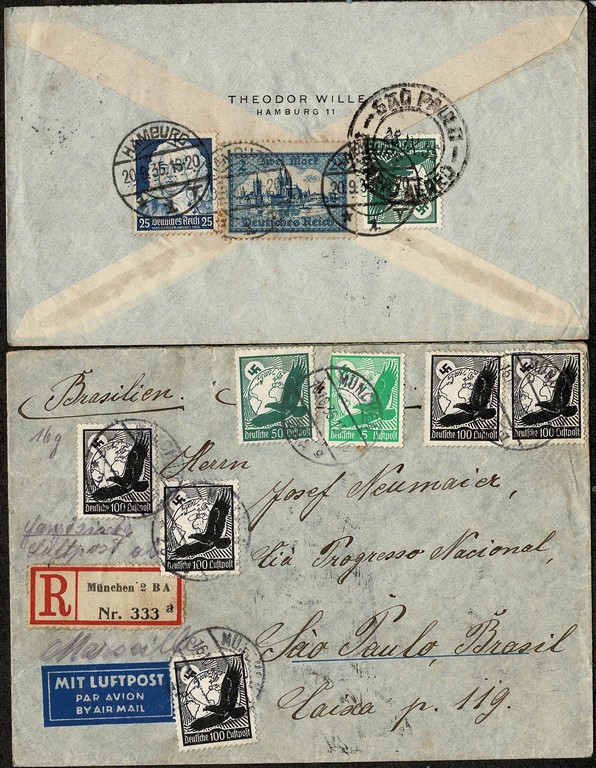 THEODOR WILLE
HAMBURG 11
SÃO PAULO
HAMBURG
20.9.35.18-20
25 Deutsches Reich 25
2 Zwei Mark 2
Deutsches Reich
20.9.3
Brasilien.
16g
50 Deutsche Luftpost
5 Deutsche Luftpost
Deutsche Luftpost 100
Deutsche Luftpost 100
MÜNC
Deutsche Luftpost 100
Deutsche Luftpost 100
Herrn
Josef Neumaier,
Cia Progresso Nacional,
São Paulo, Brasil
Caixa p. 119.
Luftpost ab
Marseille
R
München 2 BA
Nr. 333 a
MIT LUFTPOST
PAR AVION
BY AIR MAIL
MÜ
Deutsche Luftpost 100